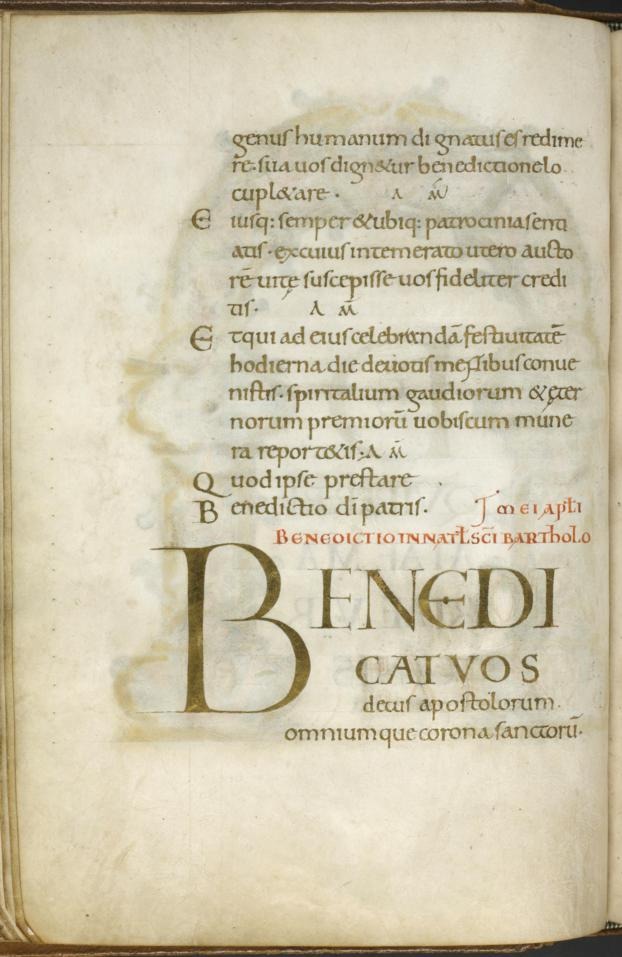 genus humanum dignatus es redime
r̄e· sua uos dign&ur benedictione lo
cupl&are · A M̄
Eiusq: semper & ubiq: patrocinia senti
atis · ex cuius intemerato utero aucto
rē uitę suscepisse uos fideliter credi
tis· A M̄
Et qui ad eius celebrandā festiuitatē
hodierna die deuotis mentibus conue
nistis· spiritalium gaudiorum & ęter
norum premiorū uobiscum mune
ra report&is· A M̄
Quod ipse prestare
Benedictio dī patris.
BENEDICTIO IN NAT̄L SC̄I BARTholo
mEI APłI
BENEDI
CAT VOS
decus apostolorum·
omniumque corona sanctorū·